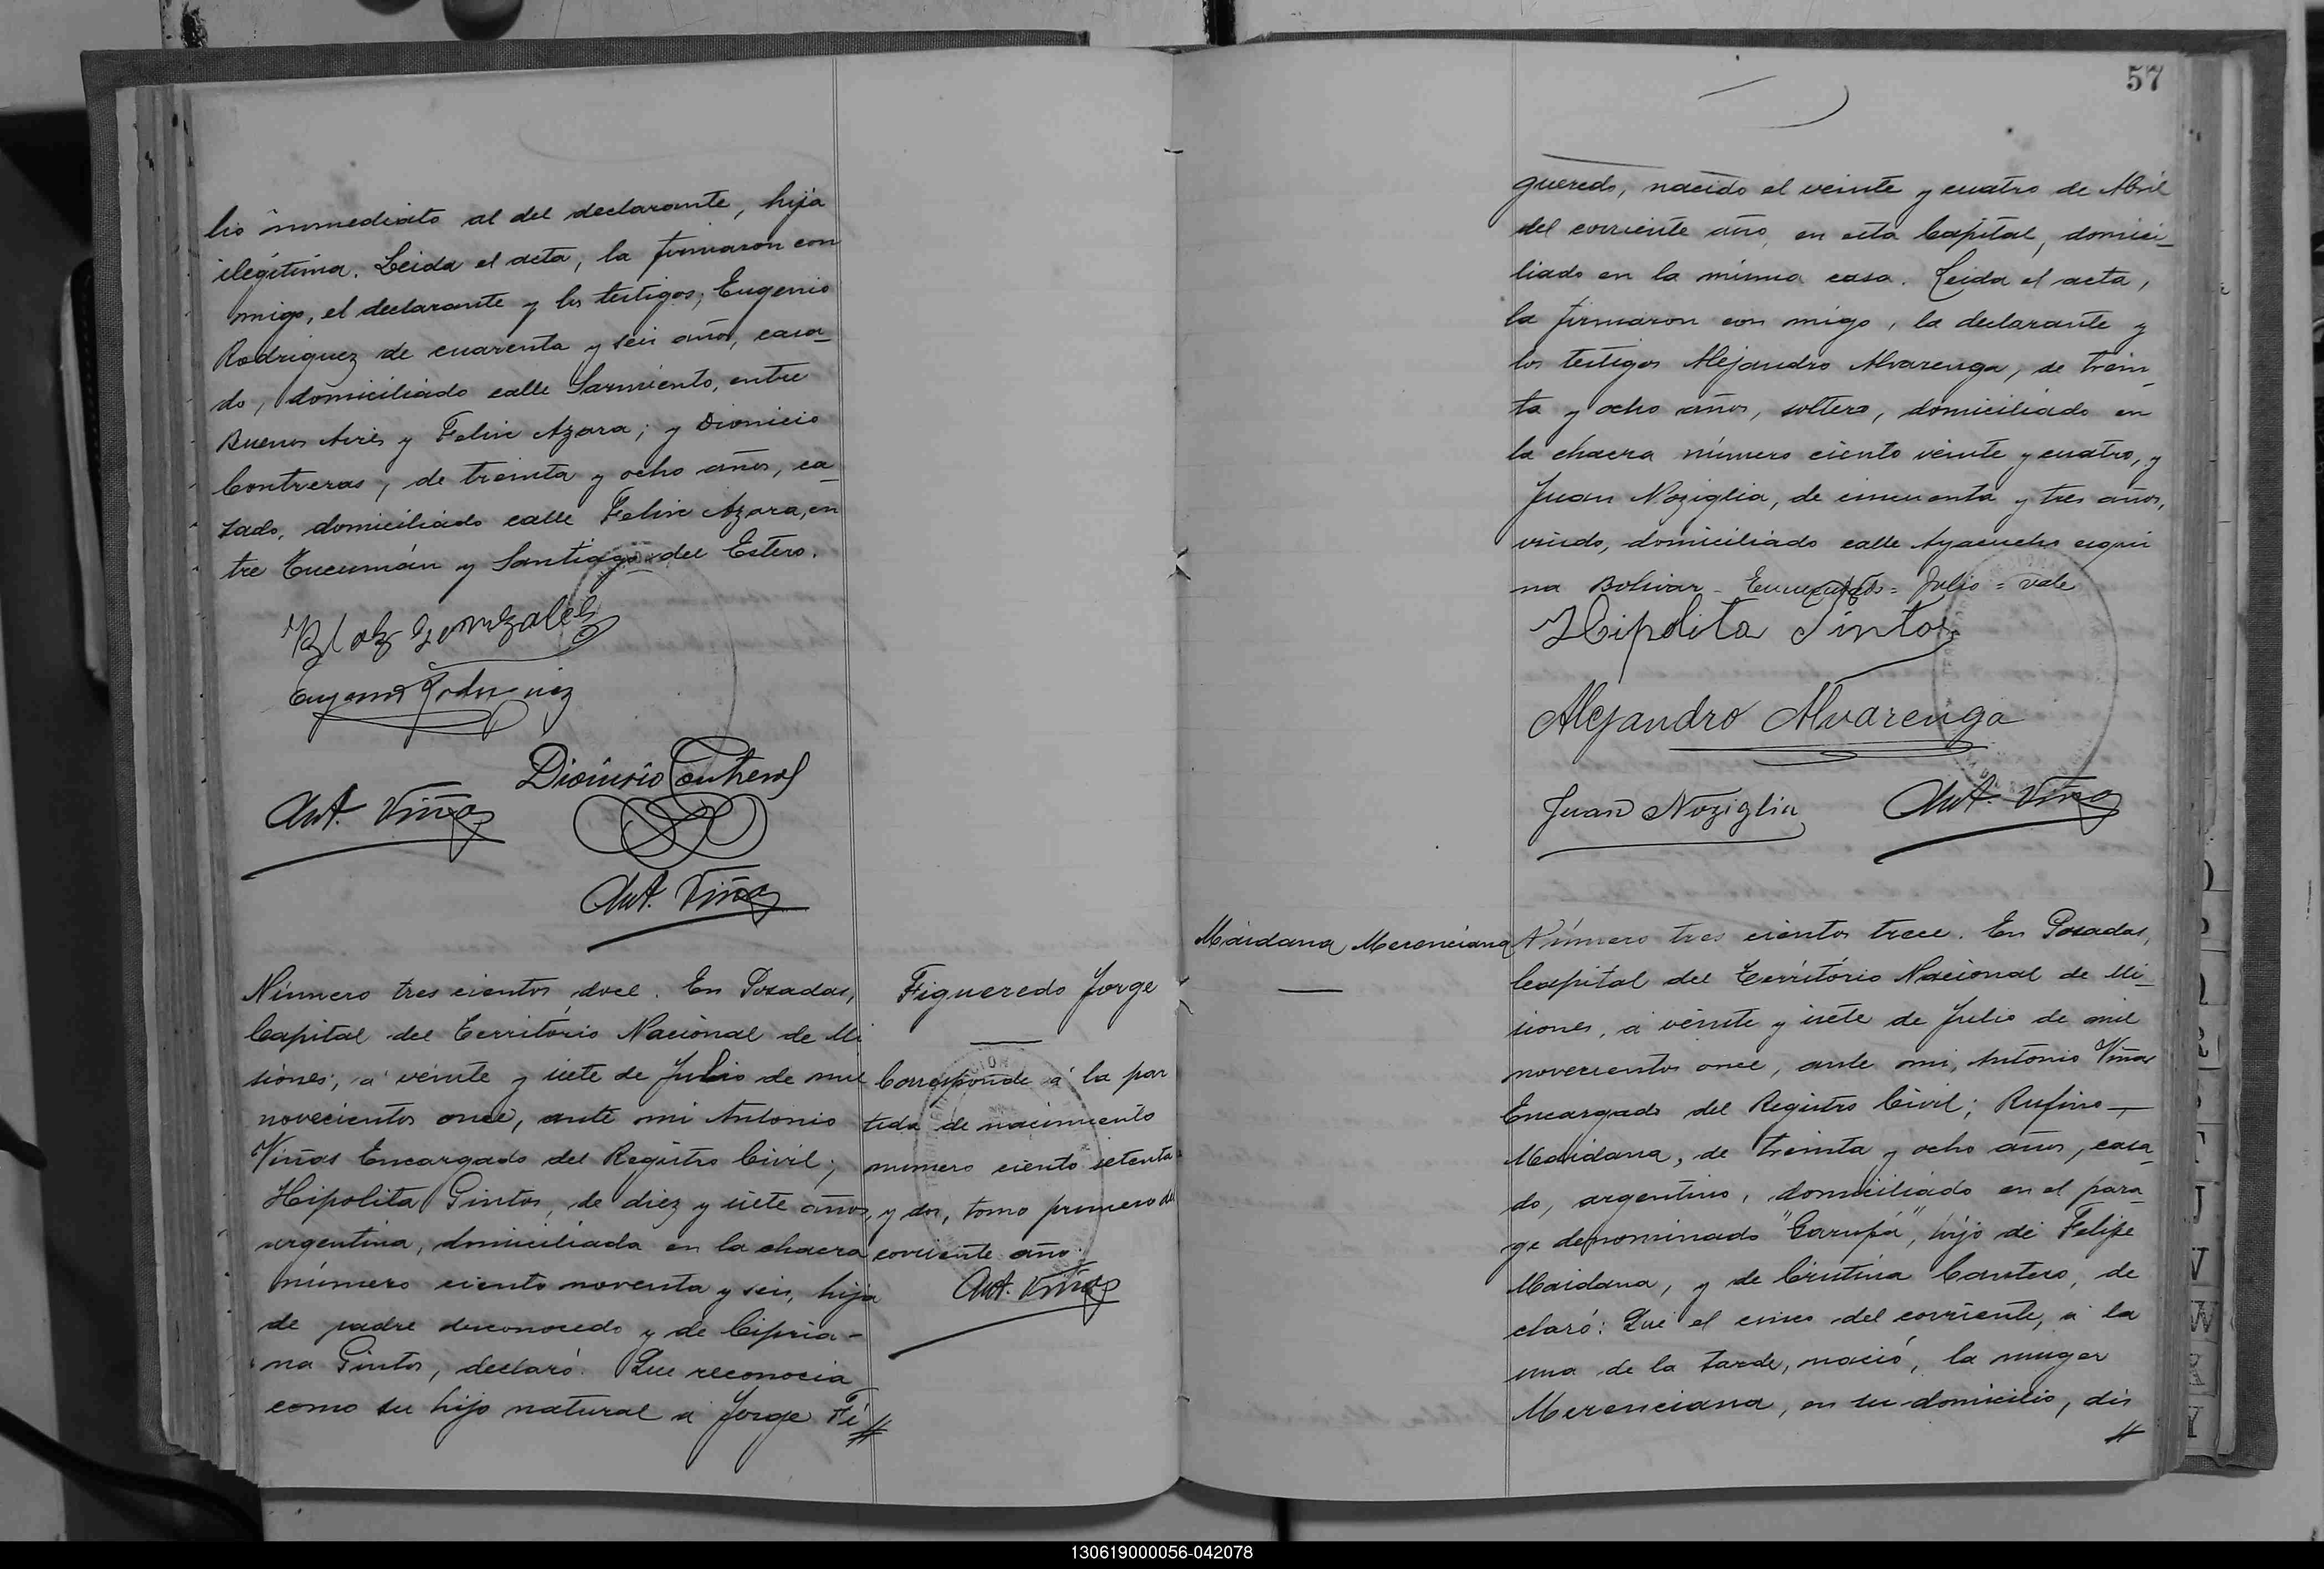 lio inmediato al del declarante, hija
ilegitima. Leida el acta, la firmaron con
migo, el declarante y los testigos; Eugenio
Rodriguez de cuarenta y seis años, casa-
do, domiciliado calle Sarmiento, entre
Buenos Aires y Felix Azara; y Dionicio
Contreras, de treinta y ocho años, ca-
sado, domiciliado calle Felix Azara, en
tre Tucumán y Santiago del Estero.
Blas Gonzalez
Eugenio Rodriguez
Dionisio Contreras
Ant. Viñas
Ant. Viñas
Número tres cientos doce. En Posadas,
Capital del Território Nacional de Mi
siones, á veinte y siete de Julio de mil
novecientos once, ante mi Antonio
Viñas Encargado del Registro Civil;
Hipolita Pintos, de diez y siete años,
argentina, domiciliada en la chacra
número ciento noventa y seis, hija
de padre desconocido y de Cipria-
na Pintos, declaró: Que reconocia
como su hijo natural a Jorge Fi
Figueredo Jorge
Corresponde á la par
tida de nacimiento
numero ciento setenta
y dos, tomo primero del
corriente año.
Ant. Viñas
57
gueredo, nacido el veinte y cuatro de Abril
del corriente año, en esta Capital, domici-
liado en la misma casa. Leida el acta,
la firmaron con migo, la declarante y
los testigos Alejandro Alvarenga, de trein-
ta y ocho años, soltero, domiciliado en
la chacra número ciento veinte y cuatro, y
Juan Noziglia, de cincuenta y tres años,
viudo, domiciliado calle Ayacucho esqui
na Bolivar - Enmendado = Julio = vale
Hipolita Pintos
Alejandro Alvarenga
Juan Noziglia
Ant. Viñas
Maidana Merenciana
Número tres cientos trece. En Posadas,
Capital del Território Nacional de Mi-
siones, á veinte y siete de Julio de mil
novecientos once, ante mi, Antonio Viñas
Encargado del Registro Civil; Rufino
Maidana, de treinta y ocho años, casa-
do, argentino, domiciliado en el para-
ge denominado "Garupá", hijo de Felipe
Maidana, y de Cristina Cantero, de
claró: Que el cinco del corriente, á la
una de la tarde, nació, la muger
Merenciana, en su domicilio, dis
130619000056-042078